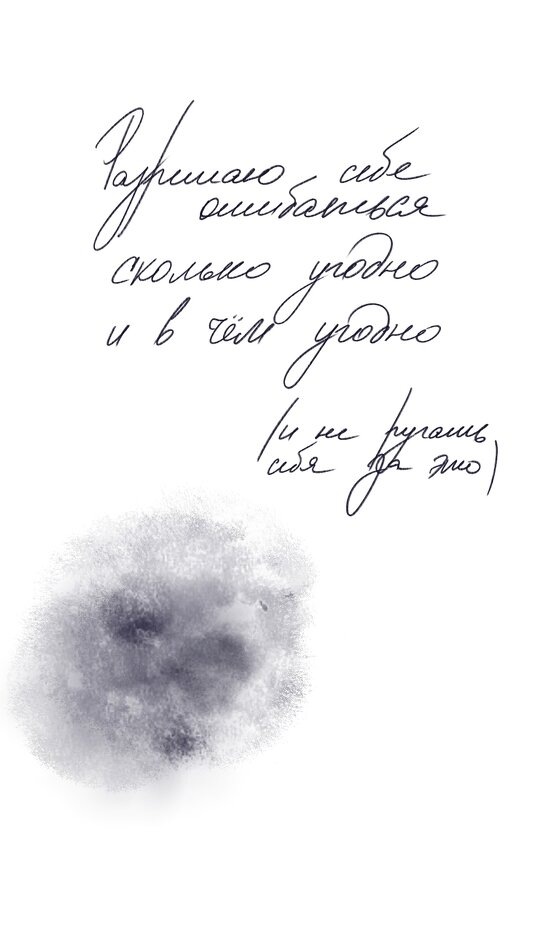 Разрешаю себе
ошибаться
сколько угодно
и в чём угодно
(и не ругать
себя за это)